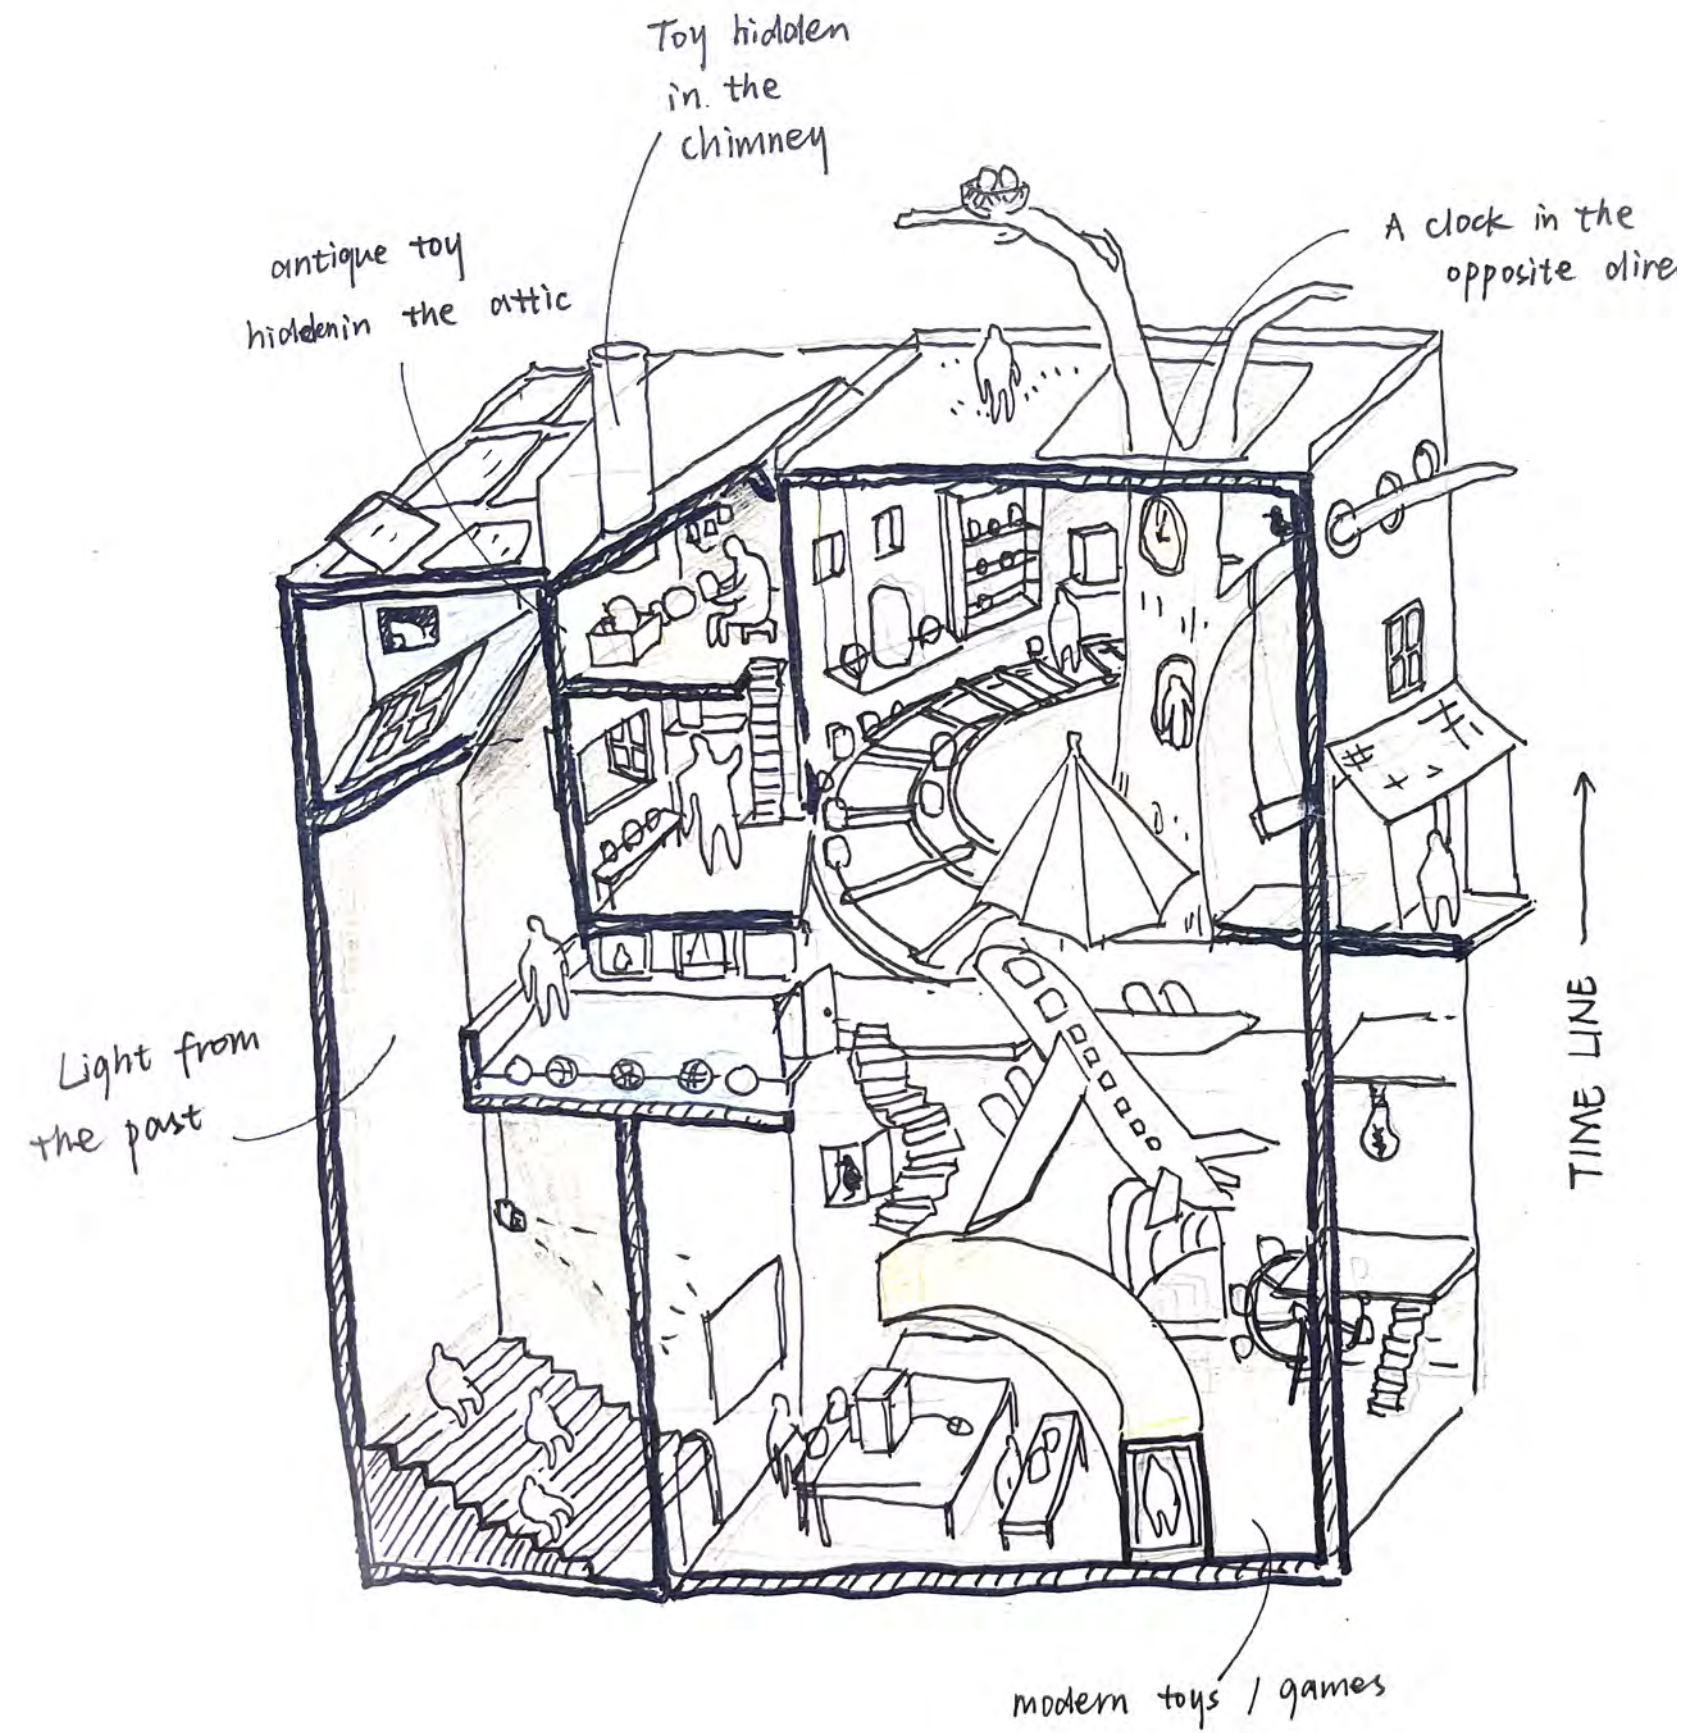 Toy hidden
in. the
chimney
antique toy
hiddenin the attic
A clock in the
opposite dire
Light from
the past
TIME LINE
modern toys / games